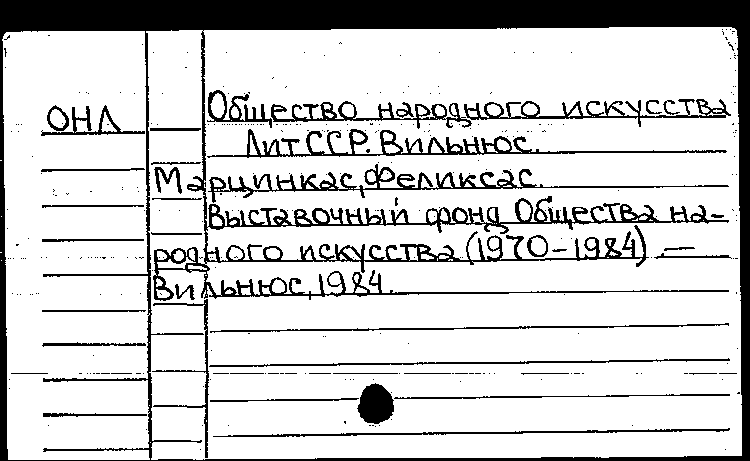 ОНЛ
Общество народного искусства
ЛитССР. Вильнюс.
Марцинкас, Феликсас.
Выставочный фонд Общества на-
родного искусства (1970-1984) —
Вильнюс, 1984.